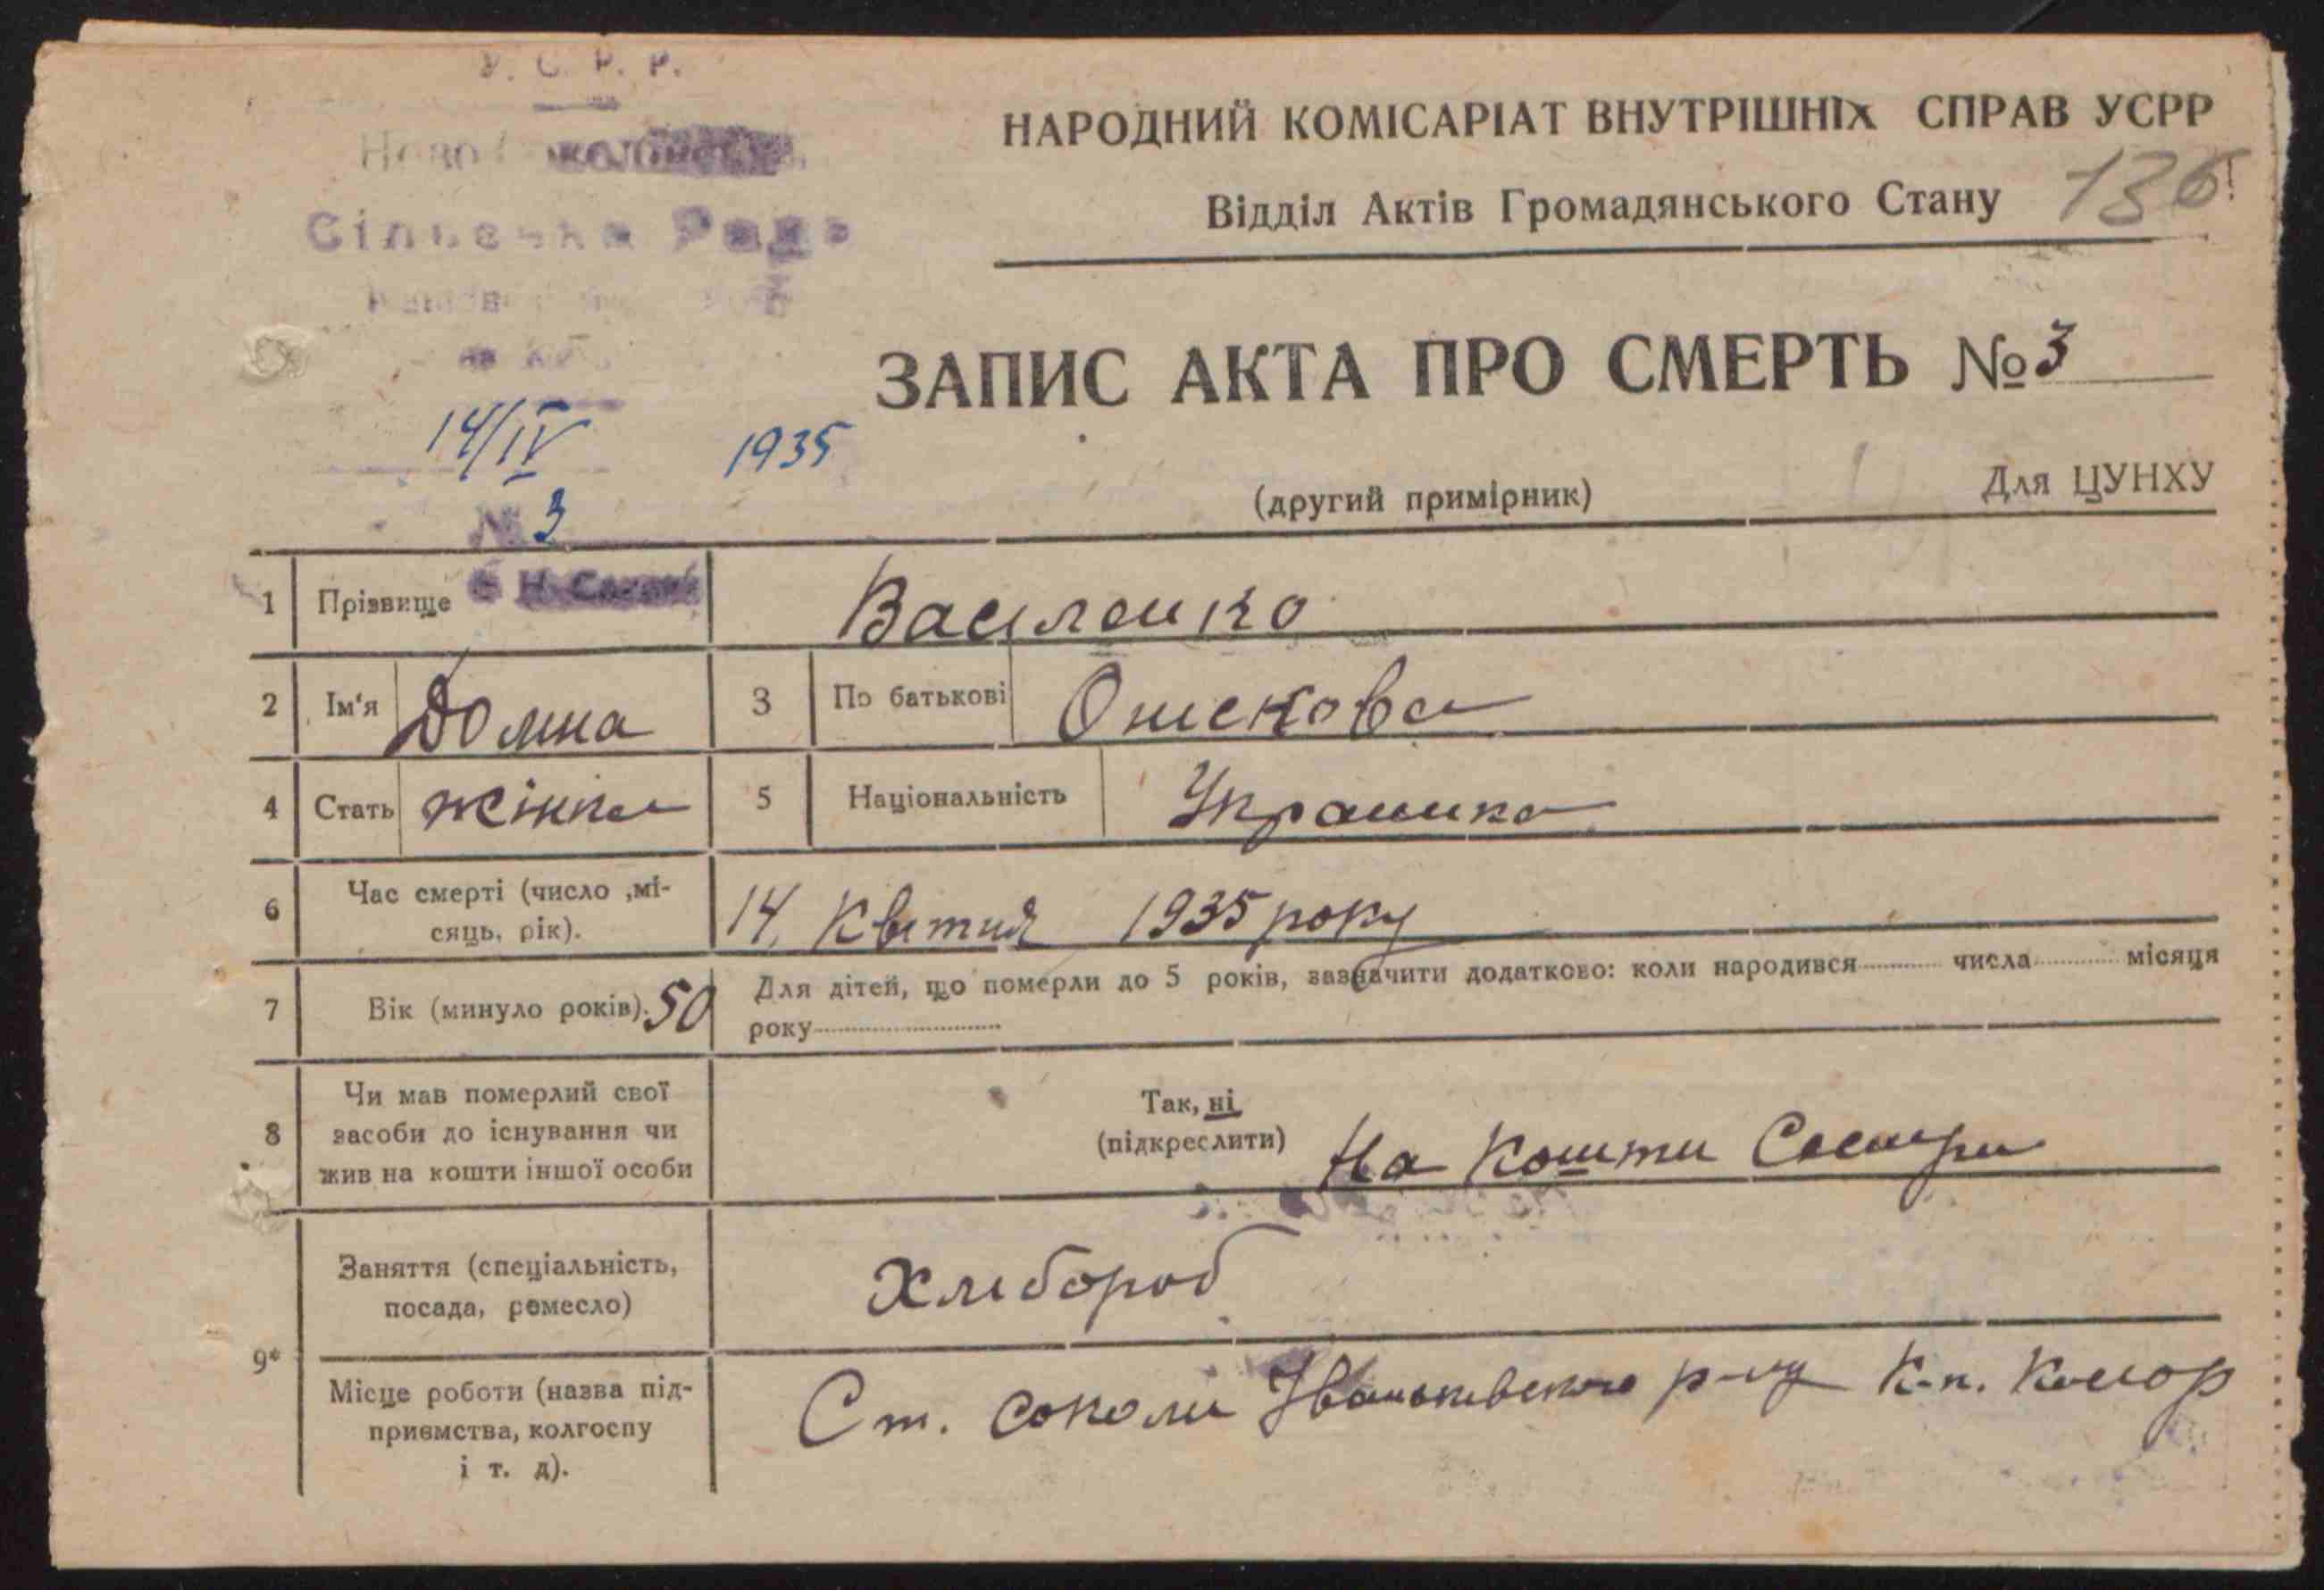 У. С. Р. Р.
Сільська Рада
14/IV 1935
№ 3
НАРОДНИЙ КОМІСАРІАТ ВНУТРІШНІХ СПРАВ УСРР
Відділ Актів Громадянського Стану 136
ЗАПИС АКТА ПРО СМЕРТЬ № 3
(другий примірник) Для ЦУНХУ
1 Прізвище Василенко
2 Ім'я Домна 3 По батькові Онискова
4 Стать жінка 5 Національність Украинка
6 Час смерті (число ,мі-
сяць, рік). 14, Квітня 1935 року
7 Вік (минуло років). 50 Для дітей, що померли до 5 років, зазначити додатково: коли народився числа місяця
року
8 Чи мав померлий свої
засоби до існування чи
жив на кошти іншої особи
Так, ні
(підкреслити) На кошти Сестри
9* Заняття (спеціальність,
посада, ремесло) Хлибороб
Місце роботи (назва під-
приємства, колгоспу
і т. д).
Ст. соколи Іваньківського р-ну